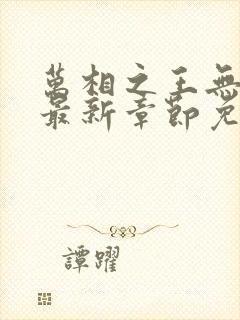 萬相之王無
最新章節免
譚躍